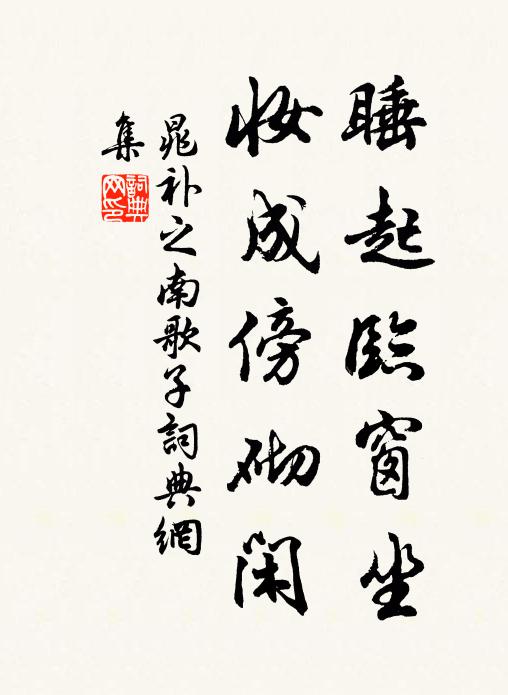 睡起臨窗坐
妝成傍砌閑
晁补之南歌子詞典網
集
詞典網印